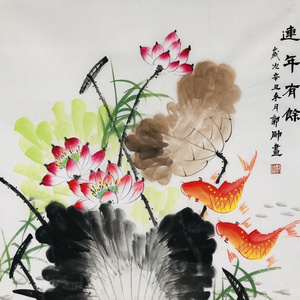 連年有餘
歲次辛丑年月郭帥畫